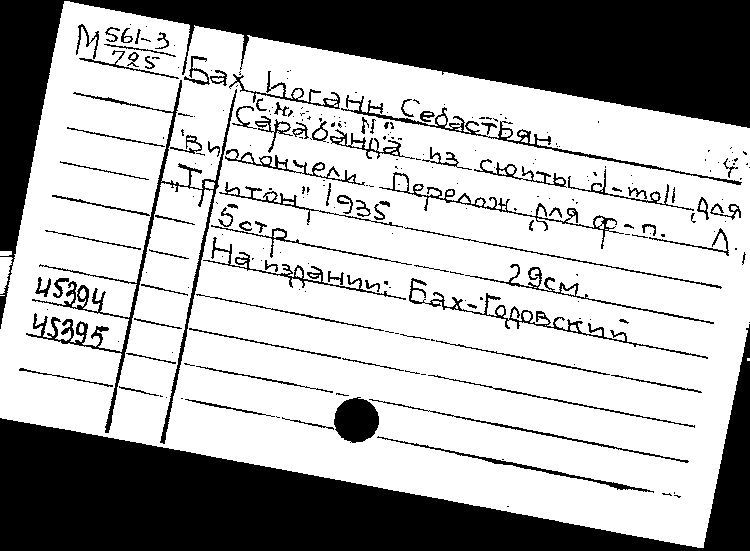 М 561-3
725
Бах, Иоганн Себастьян.
Сарабанда из сюиты d-moll для
виолончели. Перелож. для ф-п. Л.,
"Тритон", 1935.
5 стр. 29см.
На издании: Бах-Годовский.
45394
45395